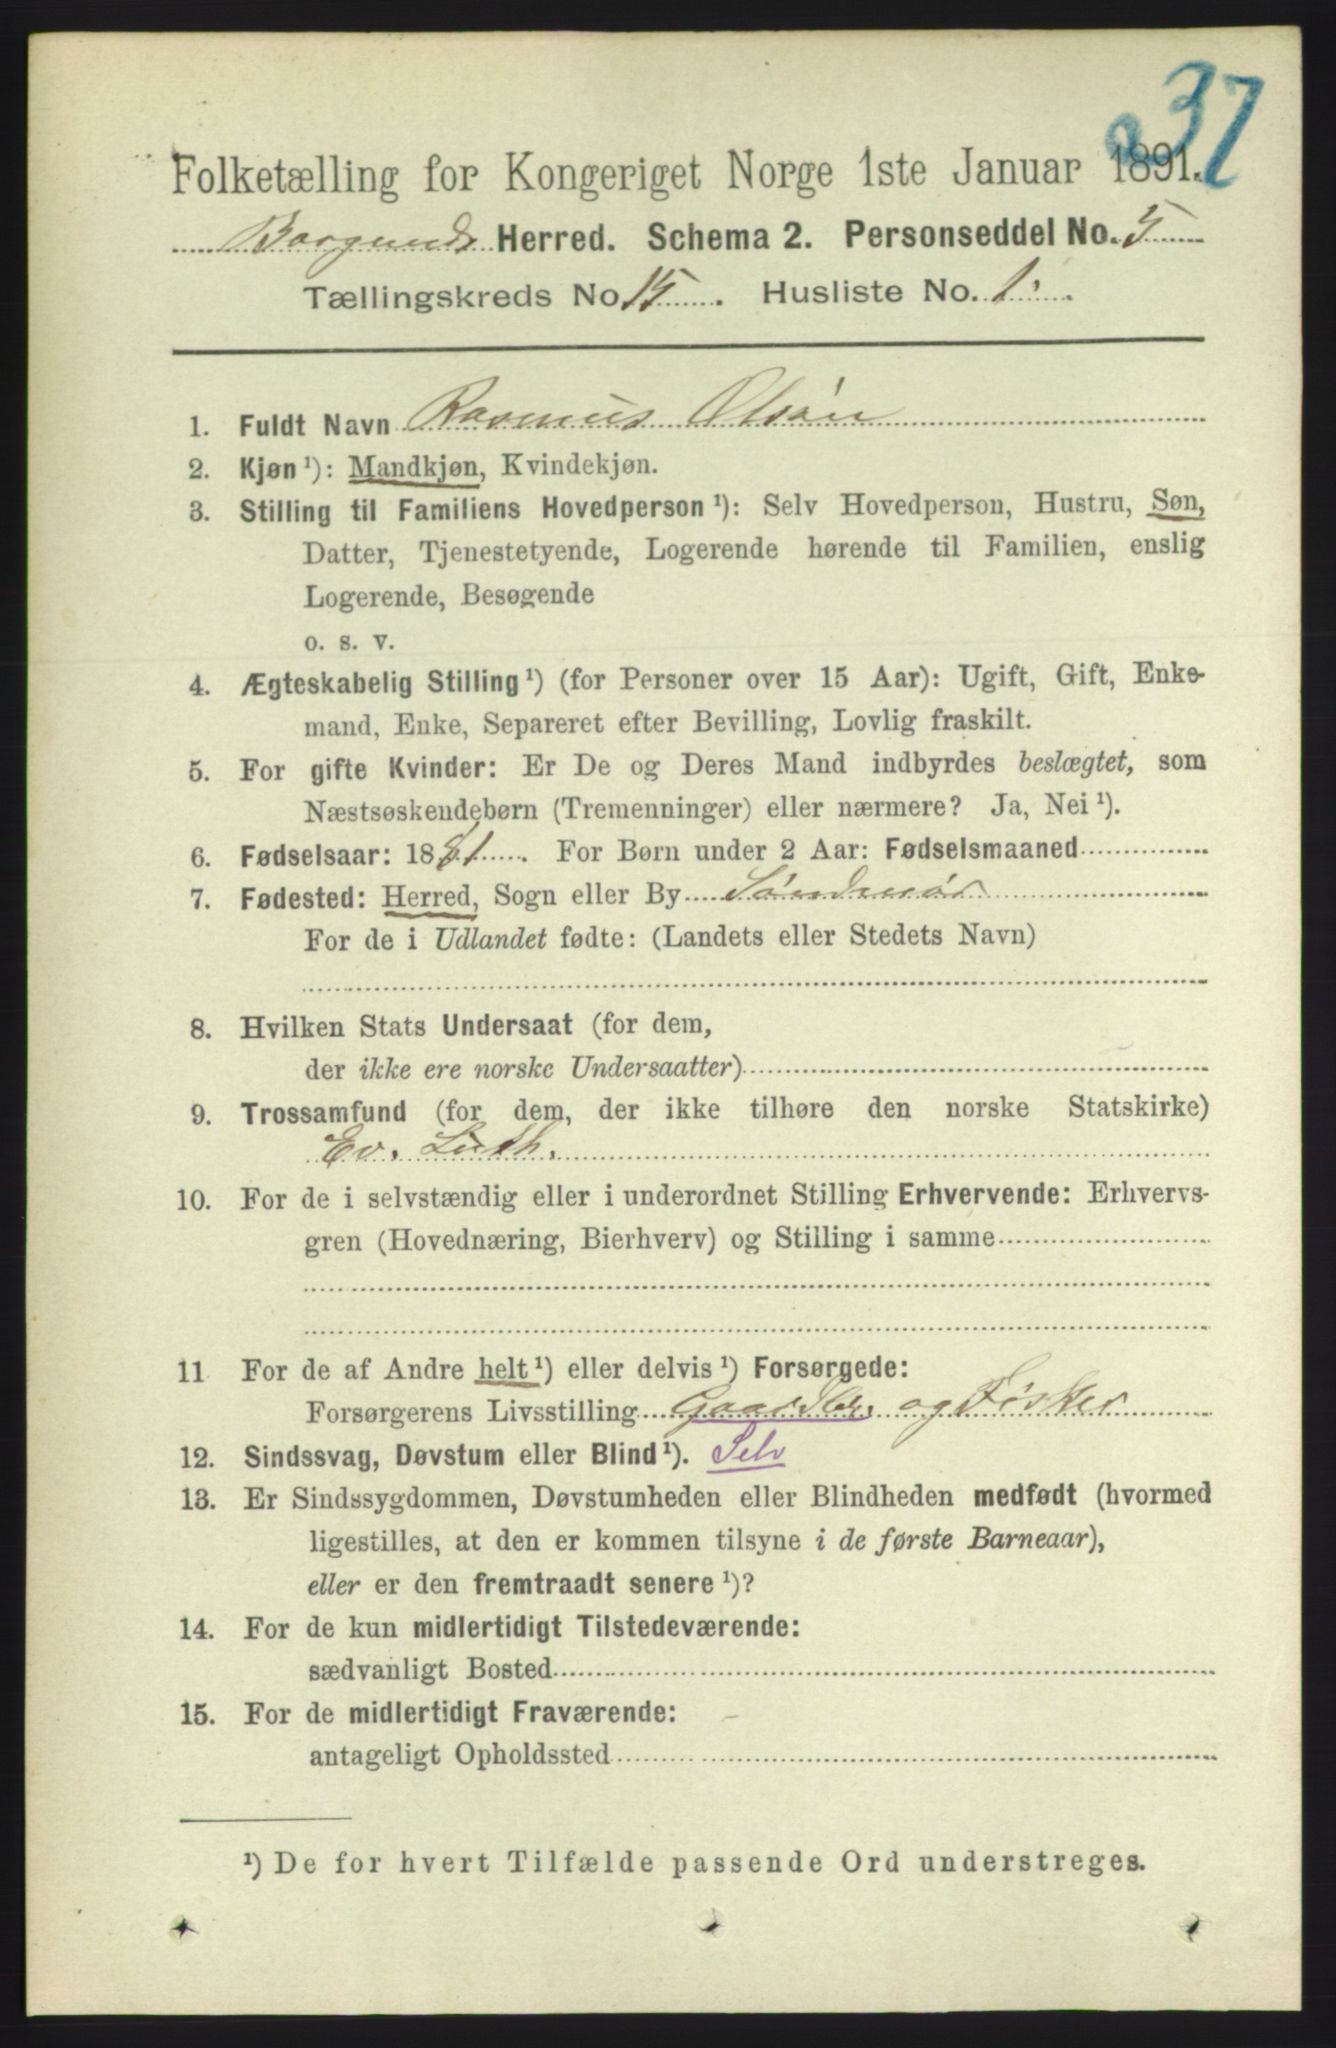 237
Folketælling for Kongeriget Norge 1ste Januar 1891.
Borgunds Herred. Schema 2. Personseddel No. 5
Tællingskreds No 15. Husliste No. 1.
1. Fuldt Navn Rasmus Olsøn
2. Kjøn ¹): Mandkjøn, Kvindekjøn.
3. Stilling til Familiens Hovedperson ¹): Selv Hovedperson, Hustru, Søn,
Datter, Tjenestetyende, Logerende hørende til Familien, enslig
Logerende, Besøgende
o. s. v.
4. Ægteskabelig Stilling ¹) (for Personer over 15 Aar): Ugift, Gift, Enke-
mand, Enke, Separeret efter Bevilling, Lovlig fraskilt.
5. For gifte Kvinder: Er De og Deres Mand indbyrdes beslægtet, som
Næstsøskendebørn (Tremenninger) eller nærmere? Ja, Nei ¹).
6. Fødselsaar: 1881. For Børn under 2 Aar: Fødselsmaaned
7. Fødested: Herred, Sogn eller By Søndmør
For de i Udlandet fødte: (Landets eller Stedets Navn)
8. Hvilken Stats Undersaat (for dem,
der ikke ere norske Undersaatter)
9. Trossamfund (for dem, der ikke tilhøre den norske Statskirke)
Ev. Luth.
10. For de i selvstændig eller i underordnet Stilling Erhvervende: Erhvervs-
gren (Hovednæring, Bierhverv) og Stilling i samme
11 For de af Andre helt ¹) eller delvis ¹) Forsørgede:
Forsørgerens Livsstilling Gaardbr. og Fisker
12. Sindssvag, Døvstum eller Blind ¹). Selv
13. Er Sindssygdommen, Døvstumheden eller Blindheden medfødt (hvormed
ligestilles, at den er kommen tilsyne i de første Barneaar),
eller er den fremtraadt senere ¹)?
14. For de kun midlertidigt Tilstedeværende:
sædvanligt Bosted
15. For de midlertidigt Fraværende:
antageligt Opholdssted
¹) De for hvert Tilfælde passende Ord understreges.